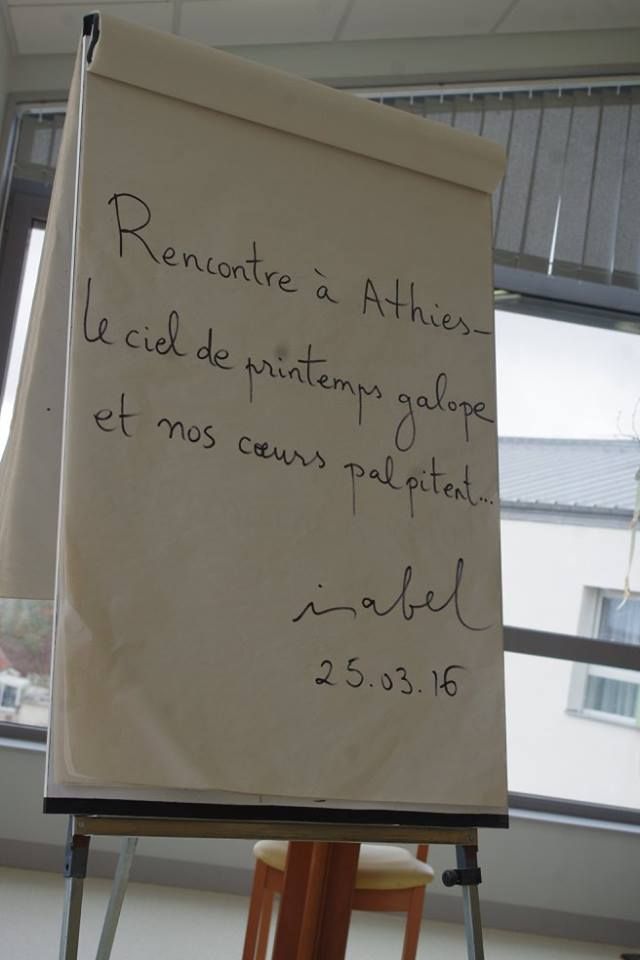 Rencontre à Athies–
le ciel de printemps galope
et nos cœurs palpitent...
isabel
25.03.16